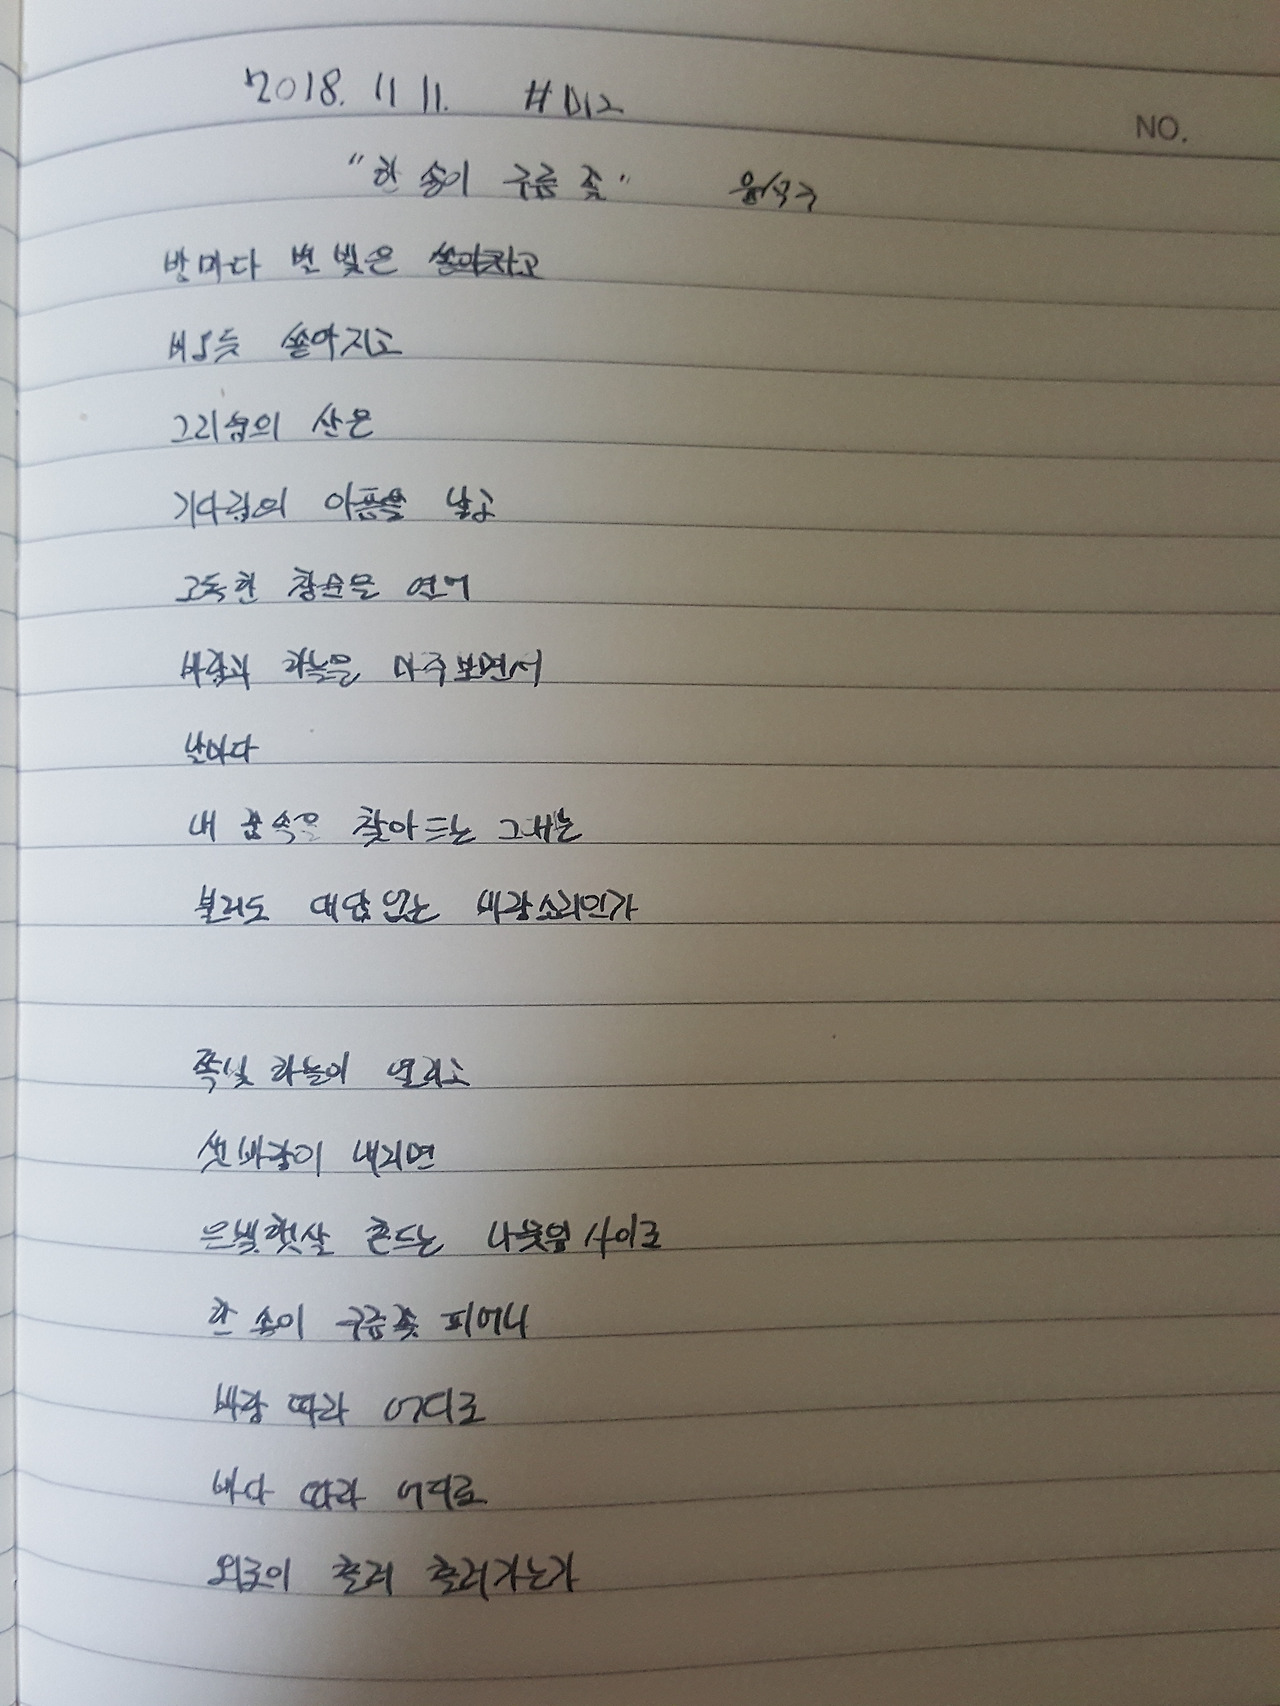 2018. 11 11. #D12
NO.
"한 송이 구름 꽃" 윤석구
밤마다 별 빛은 쏟아지고
비오듯 쏟아지고
그리움의 산은
기다림의 아픔을 낳고
고독한 창문을 열어
바람과 하늘을 마주보면서
날마다
내 꿈 속을 찾아드는 그대는
불러도 대답 없는 바람소리인가
쪽빛 하늘이 열리고
샛바람이 내리면
은빛햇살 흔드는 나뭇잎 사이로
한 송이 구름꽃 피어나
바람 따라 어디로
바다 따라 어디로
외로이 흘러 흘러가는가